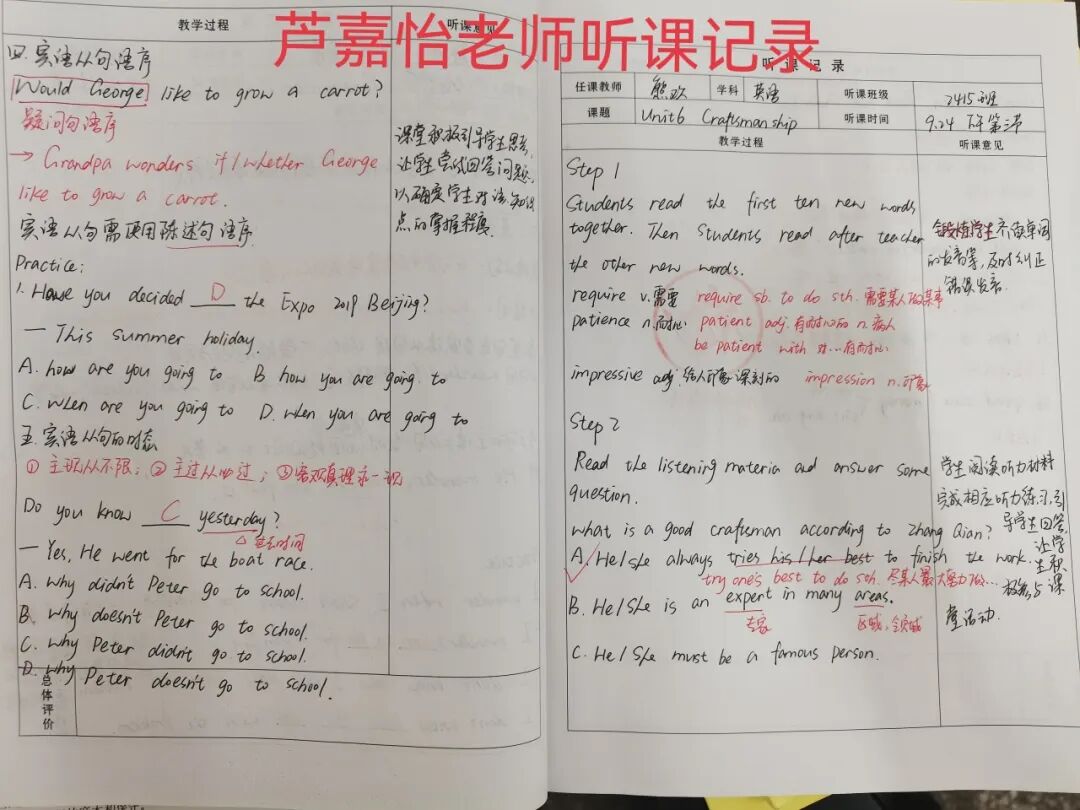 芦嘉怡老师听课记录
教学过程
听课意见
四.宾语从句语序
Would George like to grow a carrot?
疑问句语序
→ Grandpa wonders if/whether George
like to grow a carrot.
宾语从句需要用陈述句语序
课堂积极引导学生思考,
让学生尝试回答问题,
以确定学生对语知识
点的掌握程度.
Practice:
1. Have you decided D the Expo 2019 Beijing?
— This summer holiday.
A. how are you going to B. how you are going to
C. when are you going to D. when you are going to
五.宾语从句的时态
① 主现从不限; ② 主过从四过; ③ 客观真理永一现
Do you know C yesterday?
△ 过去时间
— Yes, He went for the boat race.
A. why didn't Peter go to school.
B. why doesn't Peter go to school.
C. why Peter didn't go to school.
D. why Peter doesn't go to school.
总体评价
听课记录
任课教师 熊欢 学科 英语 听课班级 2415班
课题 Unit6 Craftsmanship 听课时间 9.24 下午第二节
教学过程 听课意见
Step 1
Students read the first ten new words
together. Then Students read after teacher
the other new words.
锻炼学生齐读单词
的发音等,及时纠正
错误发音.
require v.需要 require sb. to do sth. 需要某人做某事
patience n.耐心 patient adj.有耐心的 n.病人
be patient with 对...有耐心
impressive adj.给人印象深刻的 impression n.印象
Step 2
Read the listening materia and answer some
question.
学生阅读听力材料
完成相应听力练习,引
导学生回答,
让学生积
极参与课
堂活动.
what is a good craftsman according to Zhang Qian?
A. He/she always tries his/her best to finish the work.
try one's best to do sth. 尽某人最大努力做...
B. He/She is an expert in many areas.
专家 区域,领域
C. He/She must be a famous person.